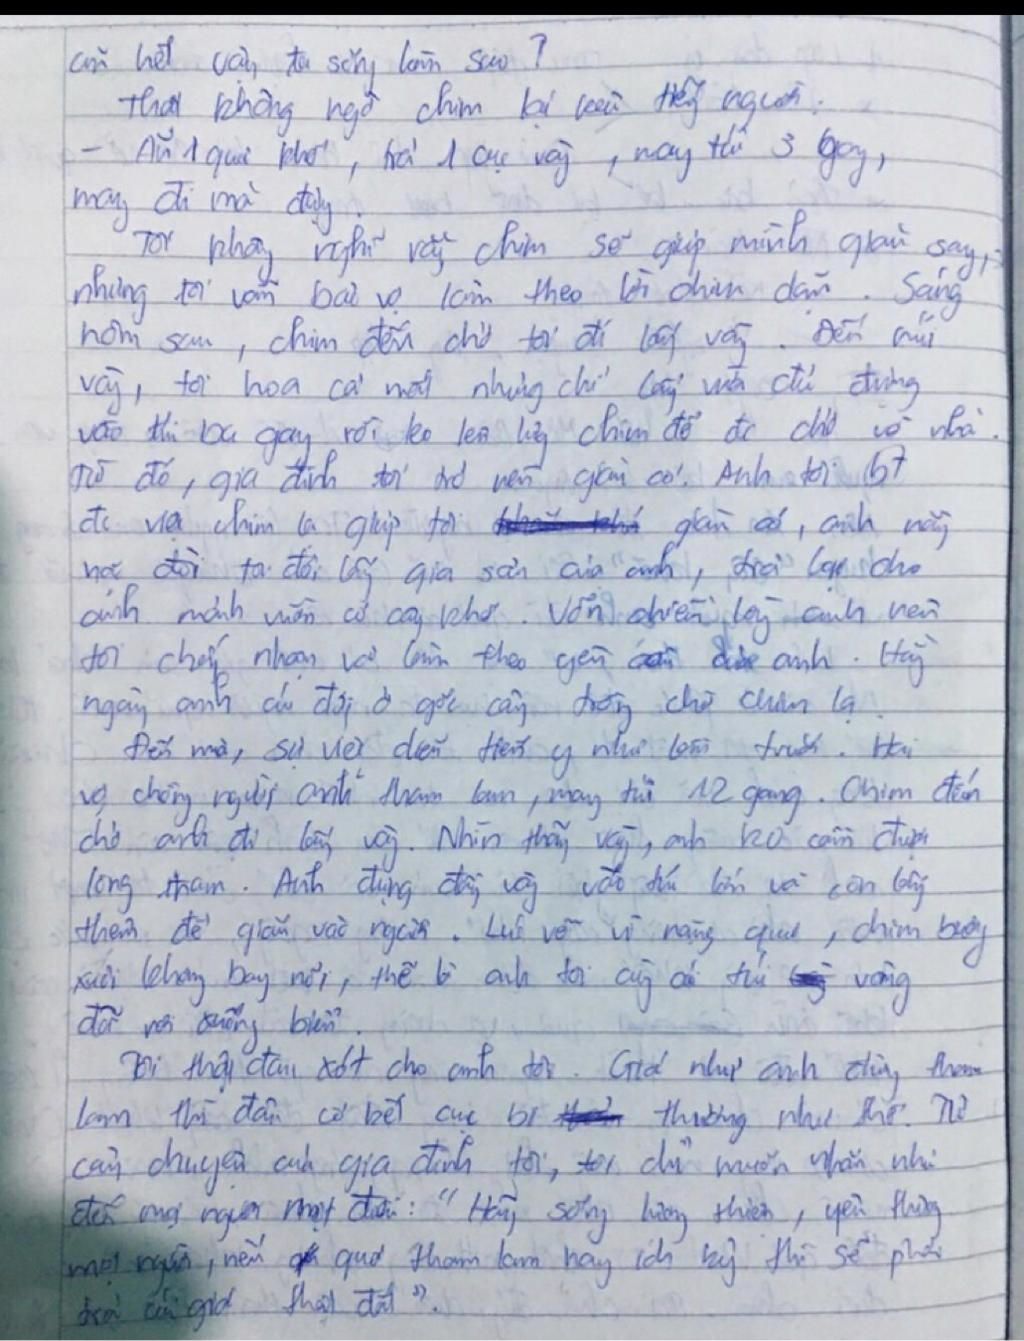 ăn hết vậy, ta sống làm sao?
Thật không ngờ chim lại kêu tiếng người.
- Ăn 1 quả khế, trả 1 cục vàng, may túi 3 gang,
mang đi mà đựng.
Tôi không nghĩ rằng chim sẽ giúp mình giàu sang,
nhưng tôi vẫn bảo vợ làm theo lời chim dặn. Sáng
hôm sau, chim đến chở tôi đi lấy vàng. Đến núi
vàng, tôi hoa cả mắt nhưng chỉ lấy vừa đủ đựng
vào túi ba gang rồi leo lên lưng chim để đc chở về nhà.
Từ đó, gia đình tôi trở nên giàu có. Anh tôi bt
đc việc chim lạ giúp tôi giàu có, anh nằng
nặc đòi tôi đổi lấy gia sản của anh, trả lại cho
anh mảnh vườn có cây khế. Vốn chiều lòng anh nên
tôi chấp nhận và làm theo yêu anh. Hằng
ngày anh cứ đợi ở gốc cây trông chờ chim lạ.
Đến mùa, sự việc diễn tiến y như lần trước. Hai
vợ chồng người anh tham lam, may túi 12 gang. Chim đến
chở anh đi lấy vàng. Nhìn thấy vàng, anh ko cầm được
lòng tham. Anh đựng đầy vàng vào túi lớn và còn lấy
thêm để giắt vào người. Lúc về vì nặng quá, chim buông
xuôi không bay nổi, thế là anh tôi cùng cả túi vàng
đều rơi xuống biển.
Tôi thật đau xót cho anh tôi. Giá như anh đừng tham
lam thì đâu có kết cục bi thương như thế. Từ
câu chuyện của gia đình tôi, tôi chỉ muốn nhắn nhủ
đến mọi người một điều: "Hãy sống lương thiện, yêu thương
mọi người, nếu quá tham lam hay ích kỷ thì sẽ phải
trả cái giá thật đắt".